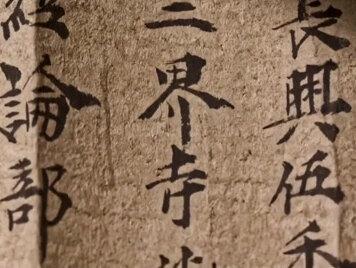 長興伍
三界寺
經論部